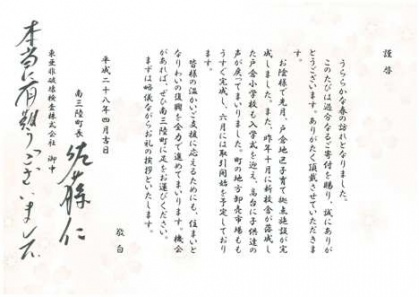 謹啓
うららかな春の訪れとなりました。
このたびは過分なるご寄付を賜り、誠にありが
とうございます。ありがたく頂戴させていただきま
す。
お陰様で先月、戸倉地区子育て拠点施設が完
成しました。また、昨年十月に新校舎が落成し
た戸倉小学校も入学式を迎え、高台に子供達の
声が戻ってまいりました。町の地方卸売市場もも
うすぐ完成し、六月には取引開始を予定しており
ます。
皆様の温かいご支援に応えるためにも、住まいと
なりわいの復興を全力で進めてまいります。機会
があれば、ぜひ南三陸町に足をお運びください。
まずは略儀ながらお礼の挨拶といたします。
敬白
平成二十八年四月吉日
南三陸町長 佐藤仁
東亜非破壊検査株式会社 御中
本当に有難うございました